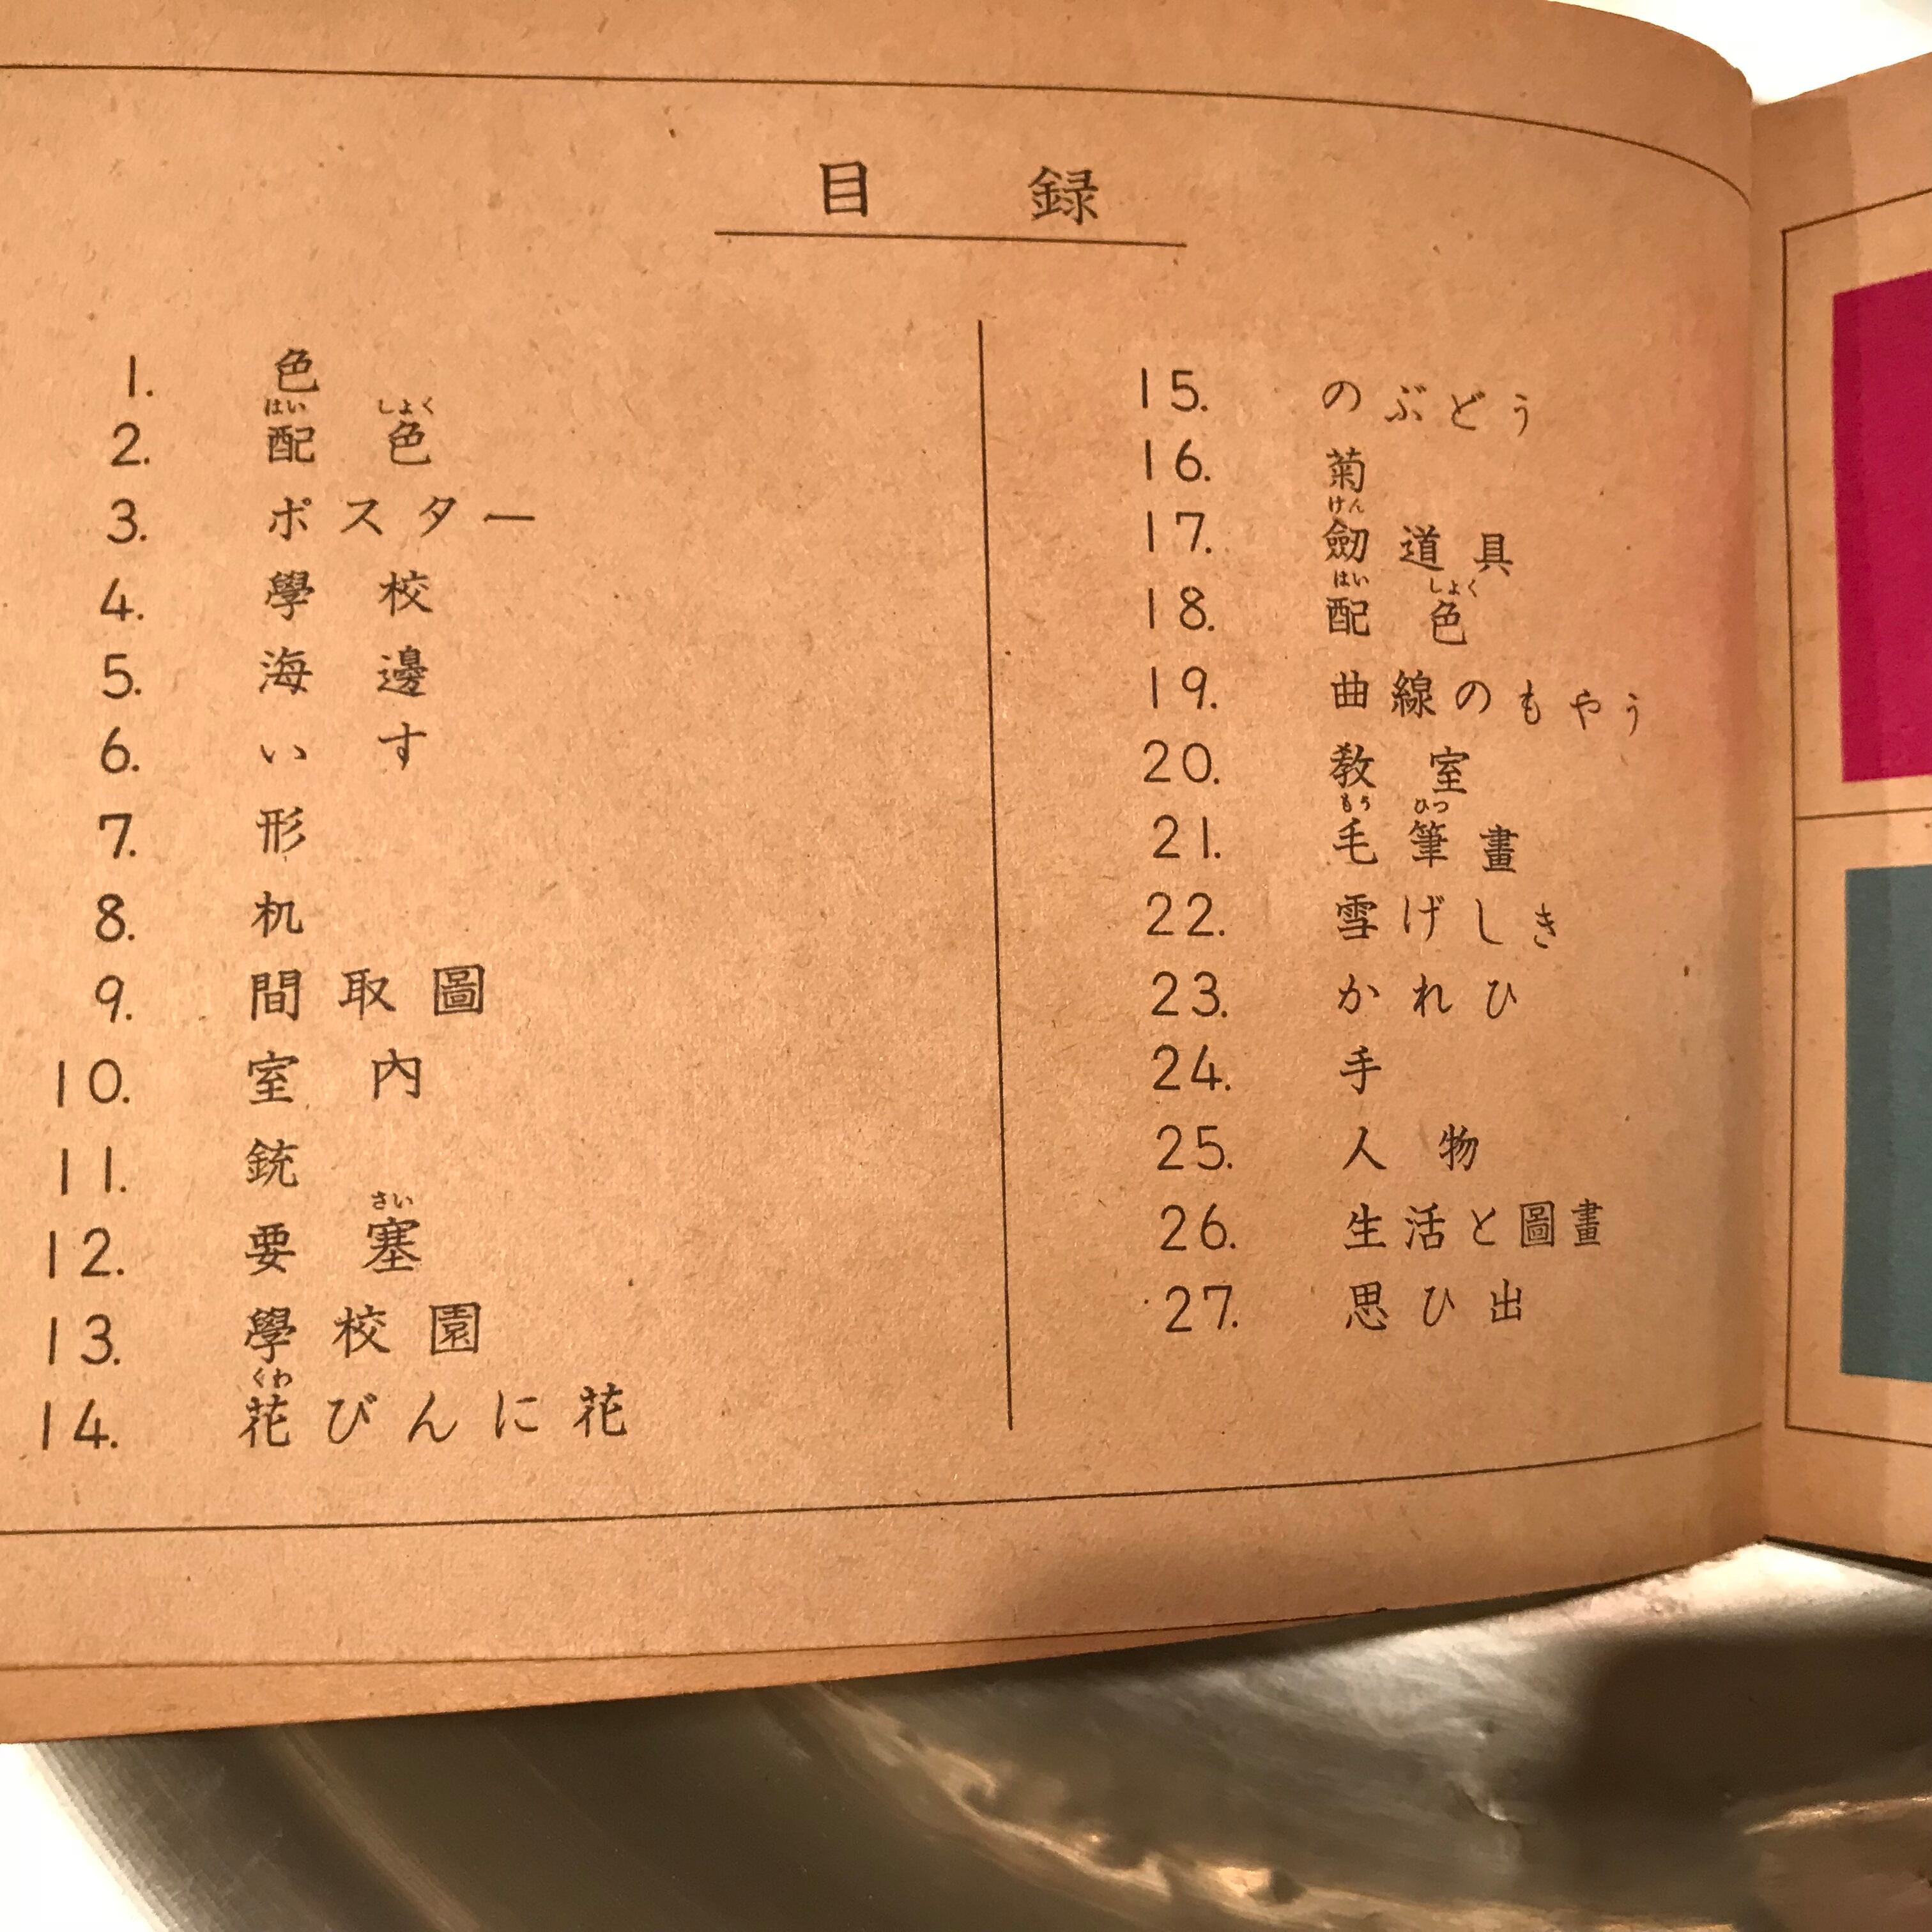 目録
1. 色
はい しょく
2. 配色
3. ポスター
4. 學校
5. 海邊
6. いす
7. 形
8. 机
9. 間取圖
10. 室內
11. 銃
さい
12. 要塞
13. 學校園
くわ
14. 花びんに花
15. のぶどう
16. 菊
けん
17. 劒道具
はい しょく
18. 配色
19. 曲線のもやう
20. 教室
もう ひつ
21. 毛筆畫
22. 雪げしき
23. かれひ
24. 手
25. 人物
26. 生活と圖畫
27. 思ひ出